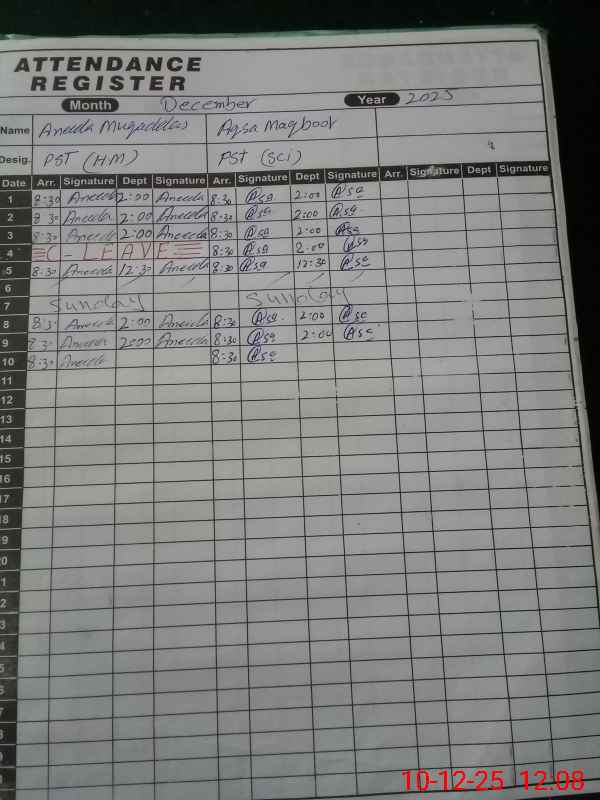 ATTENDANCE
REGISTER
Month December Year 2025
Name Aneela Muqaddas Aqsa Maqbool
Desig. PST (HM) PST (Sci)
Date Arr. Signature Dept Signature Arr. Signature Dept Signature Arr. Signature Dept Signature
1 8:30 Aneela 2:00 Aneela 8:30 Aqsa 2:00 Aqsa
2 8:30 Aneela 2:00 Aneela 8:30 Aqsa 2:00 Aqsa
3 8:30 Aneela 2:00 Aneela 8:30 Aqsa 2:00 Aqsa
4 C-LEAVE 8:30 Aqsa 2:00 Aqsa
5 8:30 Aneela 12:30 Aneela 8:30 Aqsa 12:30 Aqsa
6
7 Sunday Sunday
8 8:30 Aneela 2:00 Aneela 8:30 Aqsa 2:00 Aqsa
9 8:30 Aneela 2:00 Aneela 8:30 Aqsa 2:00 Aqsa
10 8:30 Aneela 8:30 Aqsa
11
12
13
14
15
16
17
18
9
20
1
2
3
4
5
6
7
8
9
10-12-25 12:08